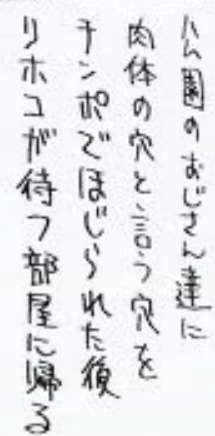 公園のおじさん達に
肉体の穴と言う穴を
チンポでほじられた後
リホコが待つ部屋に帰る